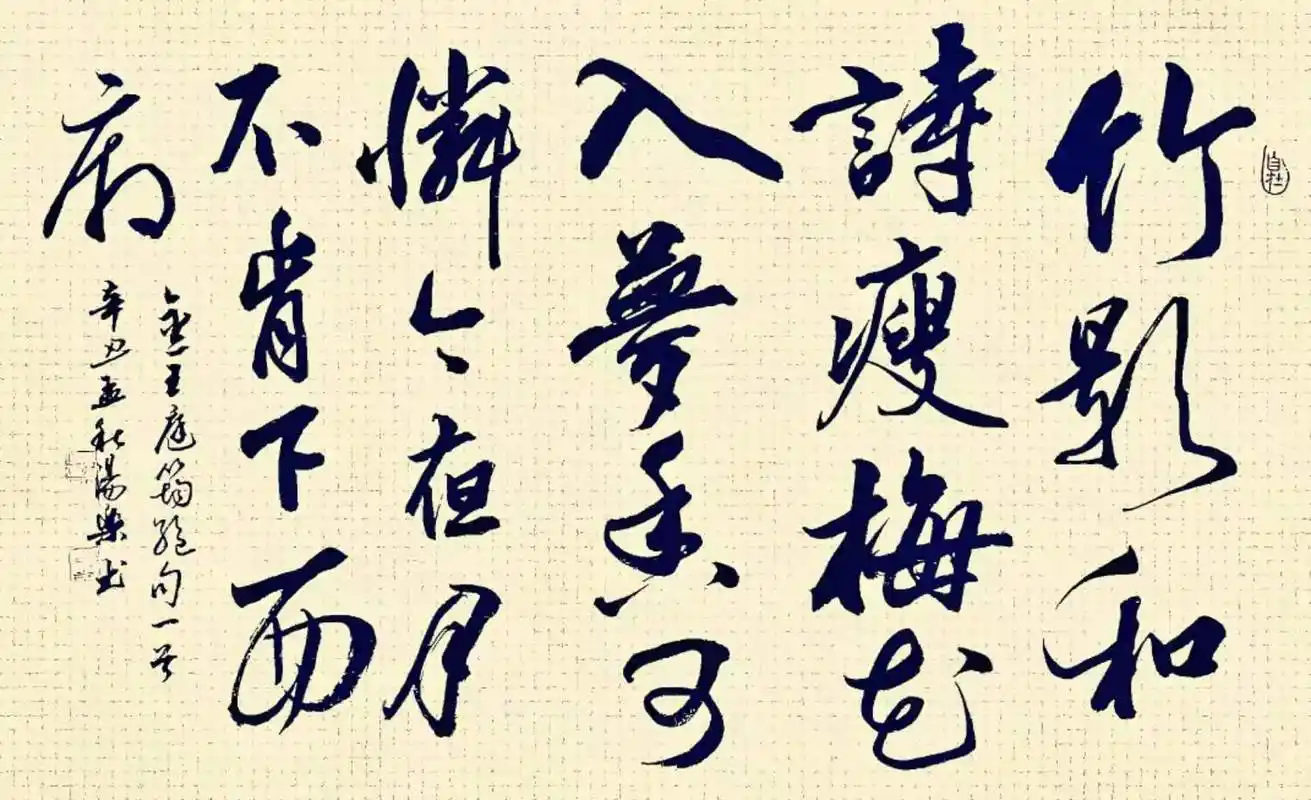 竹影和
詩瘦梅花
入夢香可
憐今夜月
不肯下西
廂
金王庭筠絕句一首
辛丑孟秋湯樂